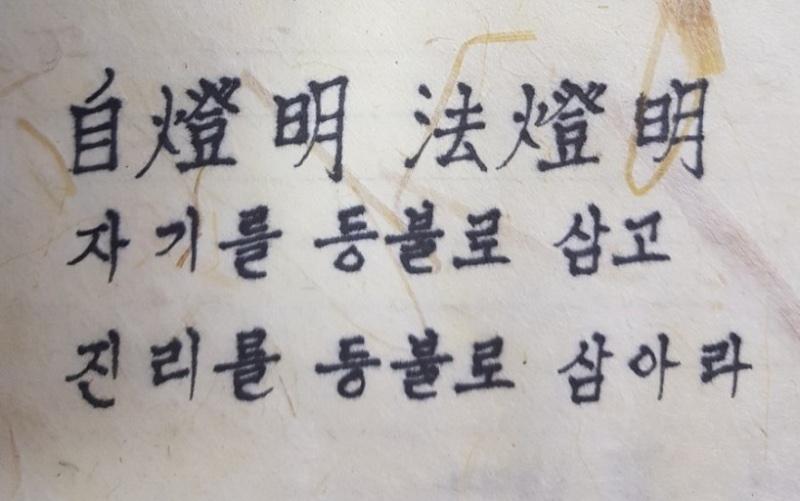 自燈明 法燈明
자기를 등불로 삼고
진리를 등불로 삼아라